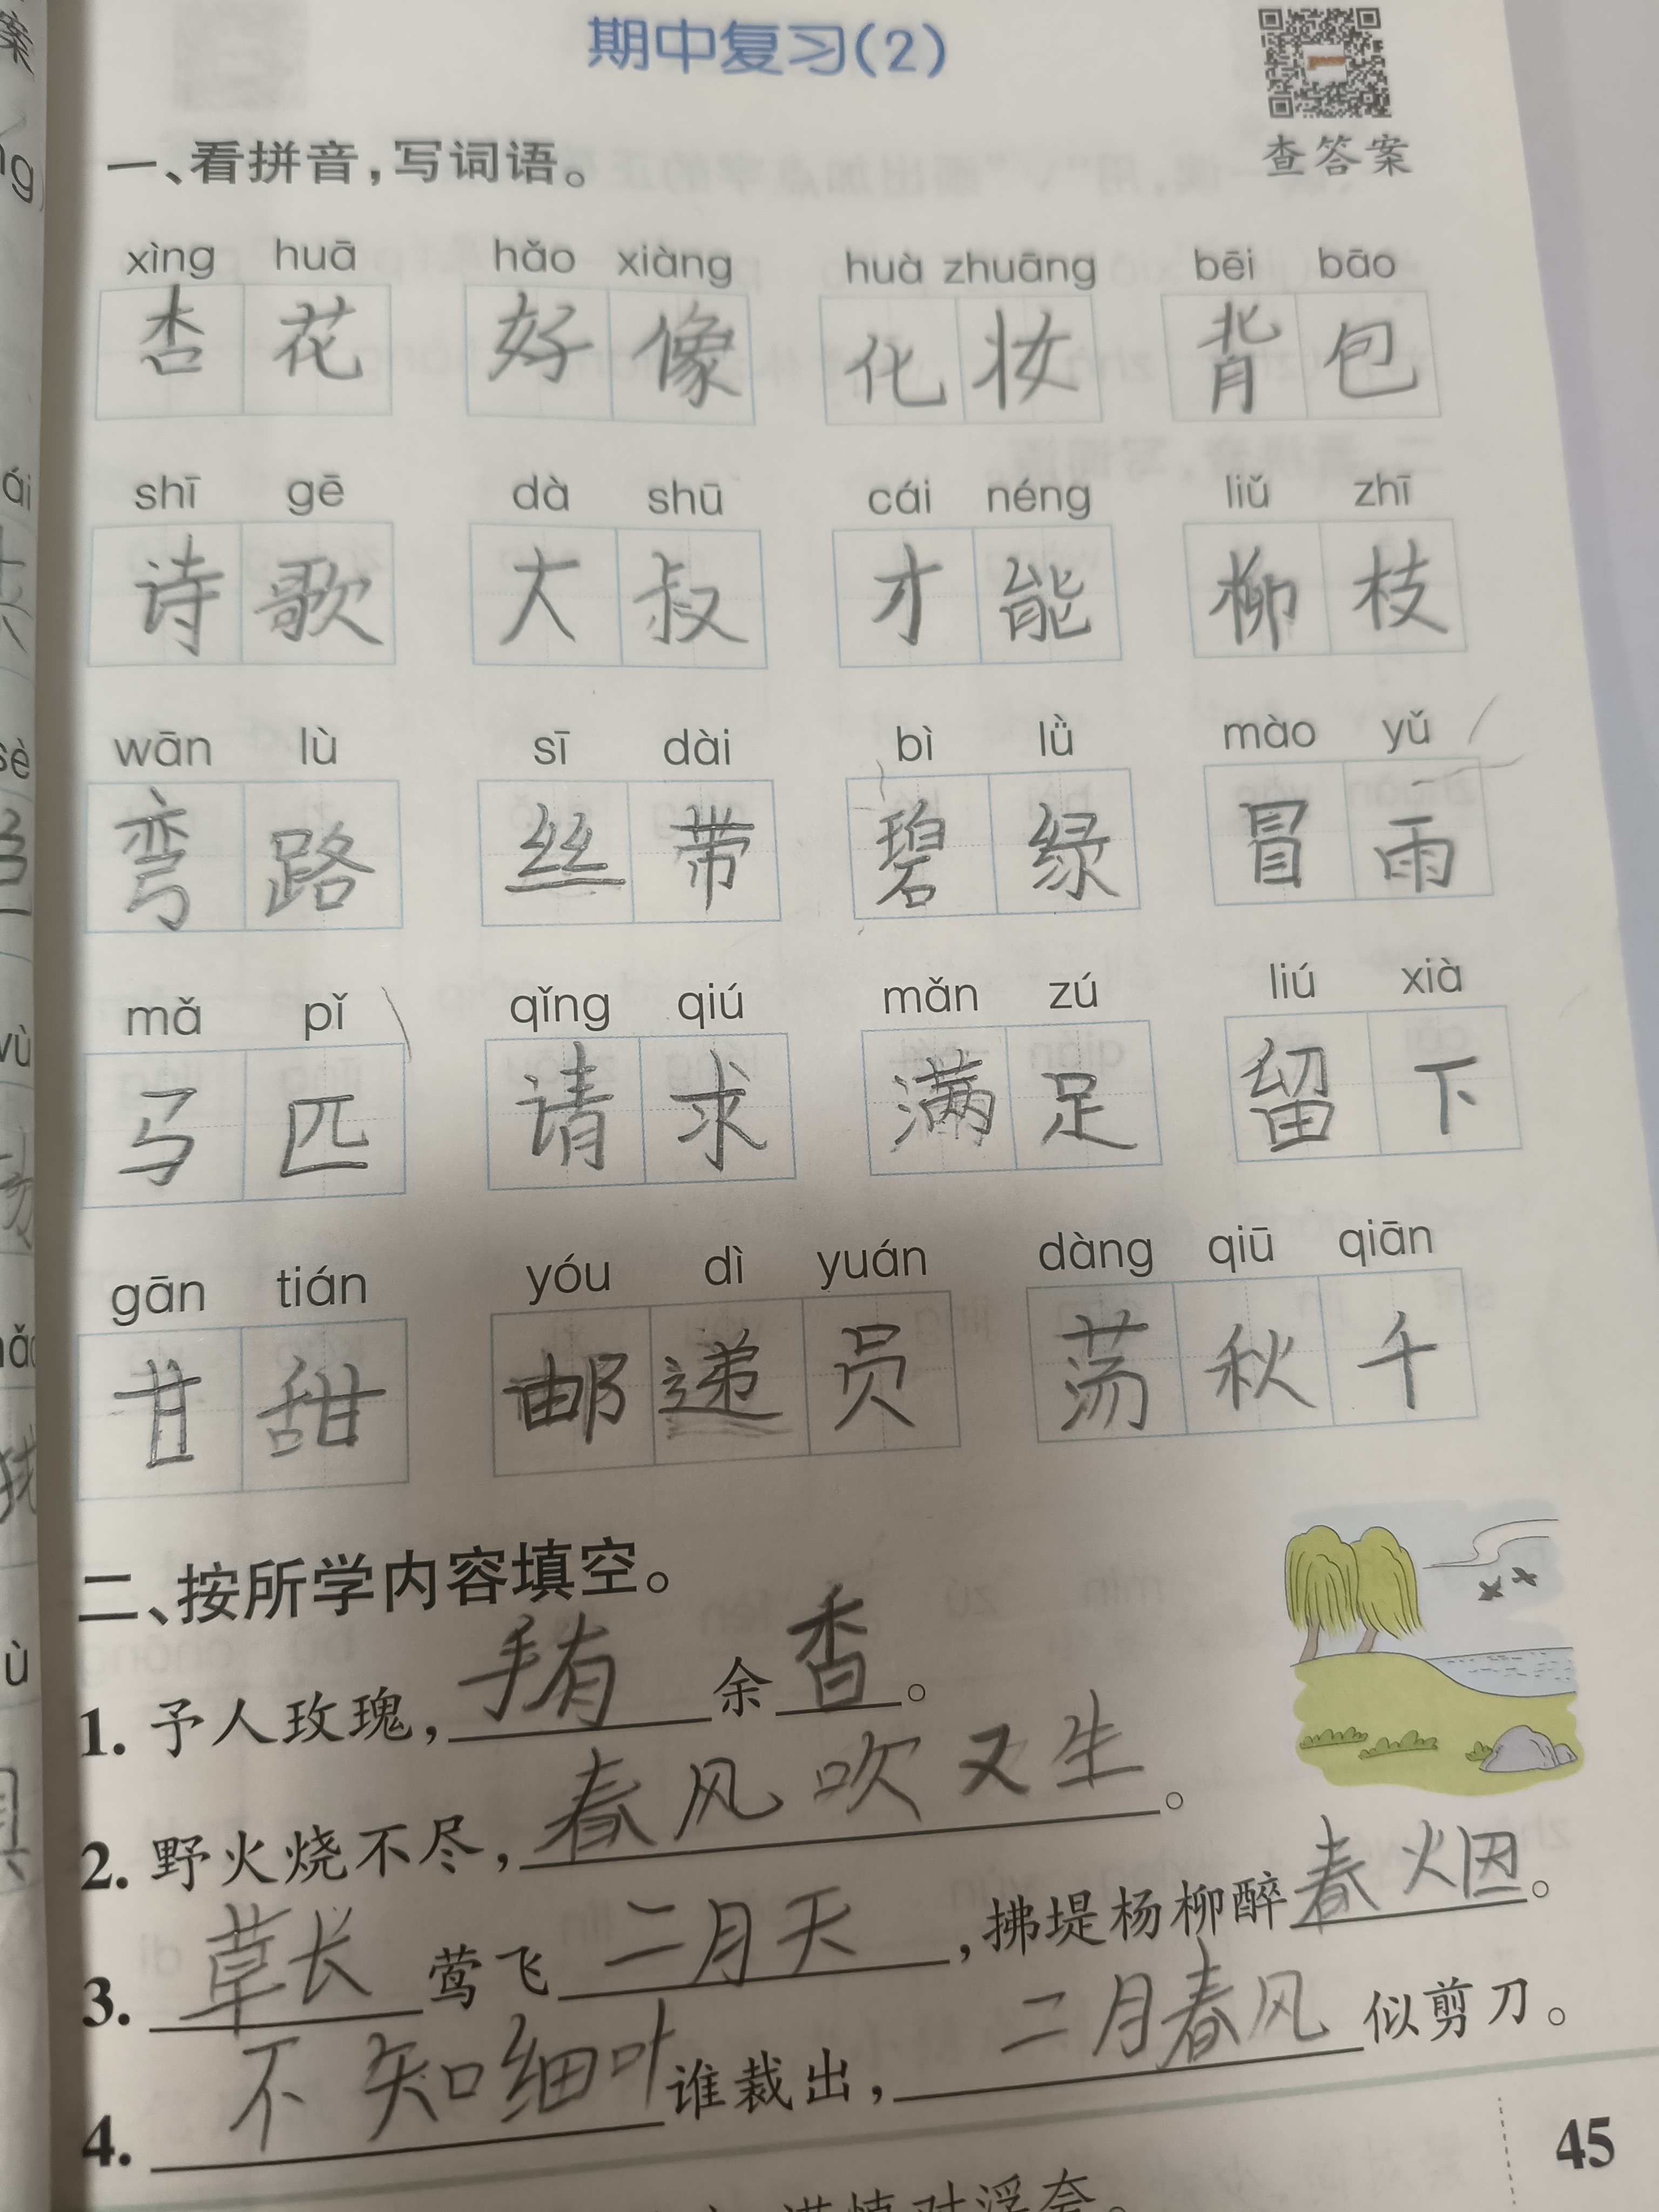 期中复习(2)
查答案
一、看拼音,写词语。
xìng huā hǎo xiàng huà zhuāng bēi bāo
杏花 好像 化妆 背包
shī gē dà shū cái néng liǔ zhī
诗歌 大叔 才能 柳枝
wān lù sī dài bì lǜ mào yǔ
弯路 丝带 碧绿 冒雨
mǎ pǐ qǐng qiú mǎn zú liú xià
马匹 请求 满足 留下
gān tián yóu dì yuán dàng qiū qiān
甘甜 邮递员 荡秋千
二、按所学内容填空。
1. 予人玫瑰,手有余香。
2. 野火烧不尽,春风吹又生。
3. 草长莺飞二月天,拂堤杨柳醉春烟。
4. 不知细叶谁裁出,二月春风似剪刀。
45